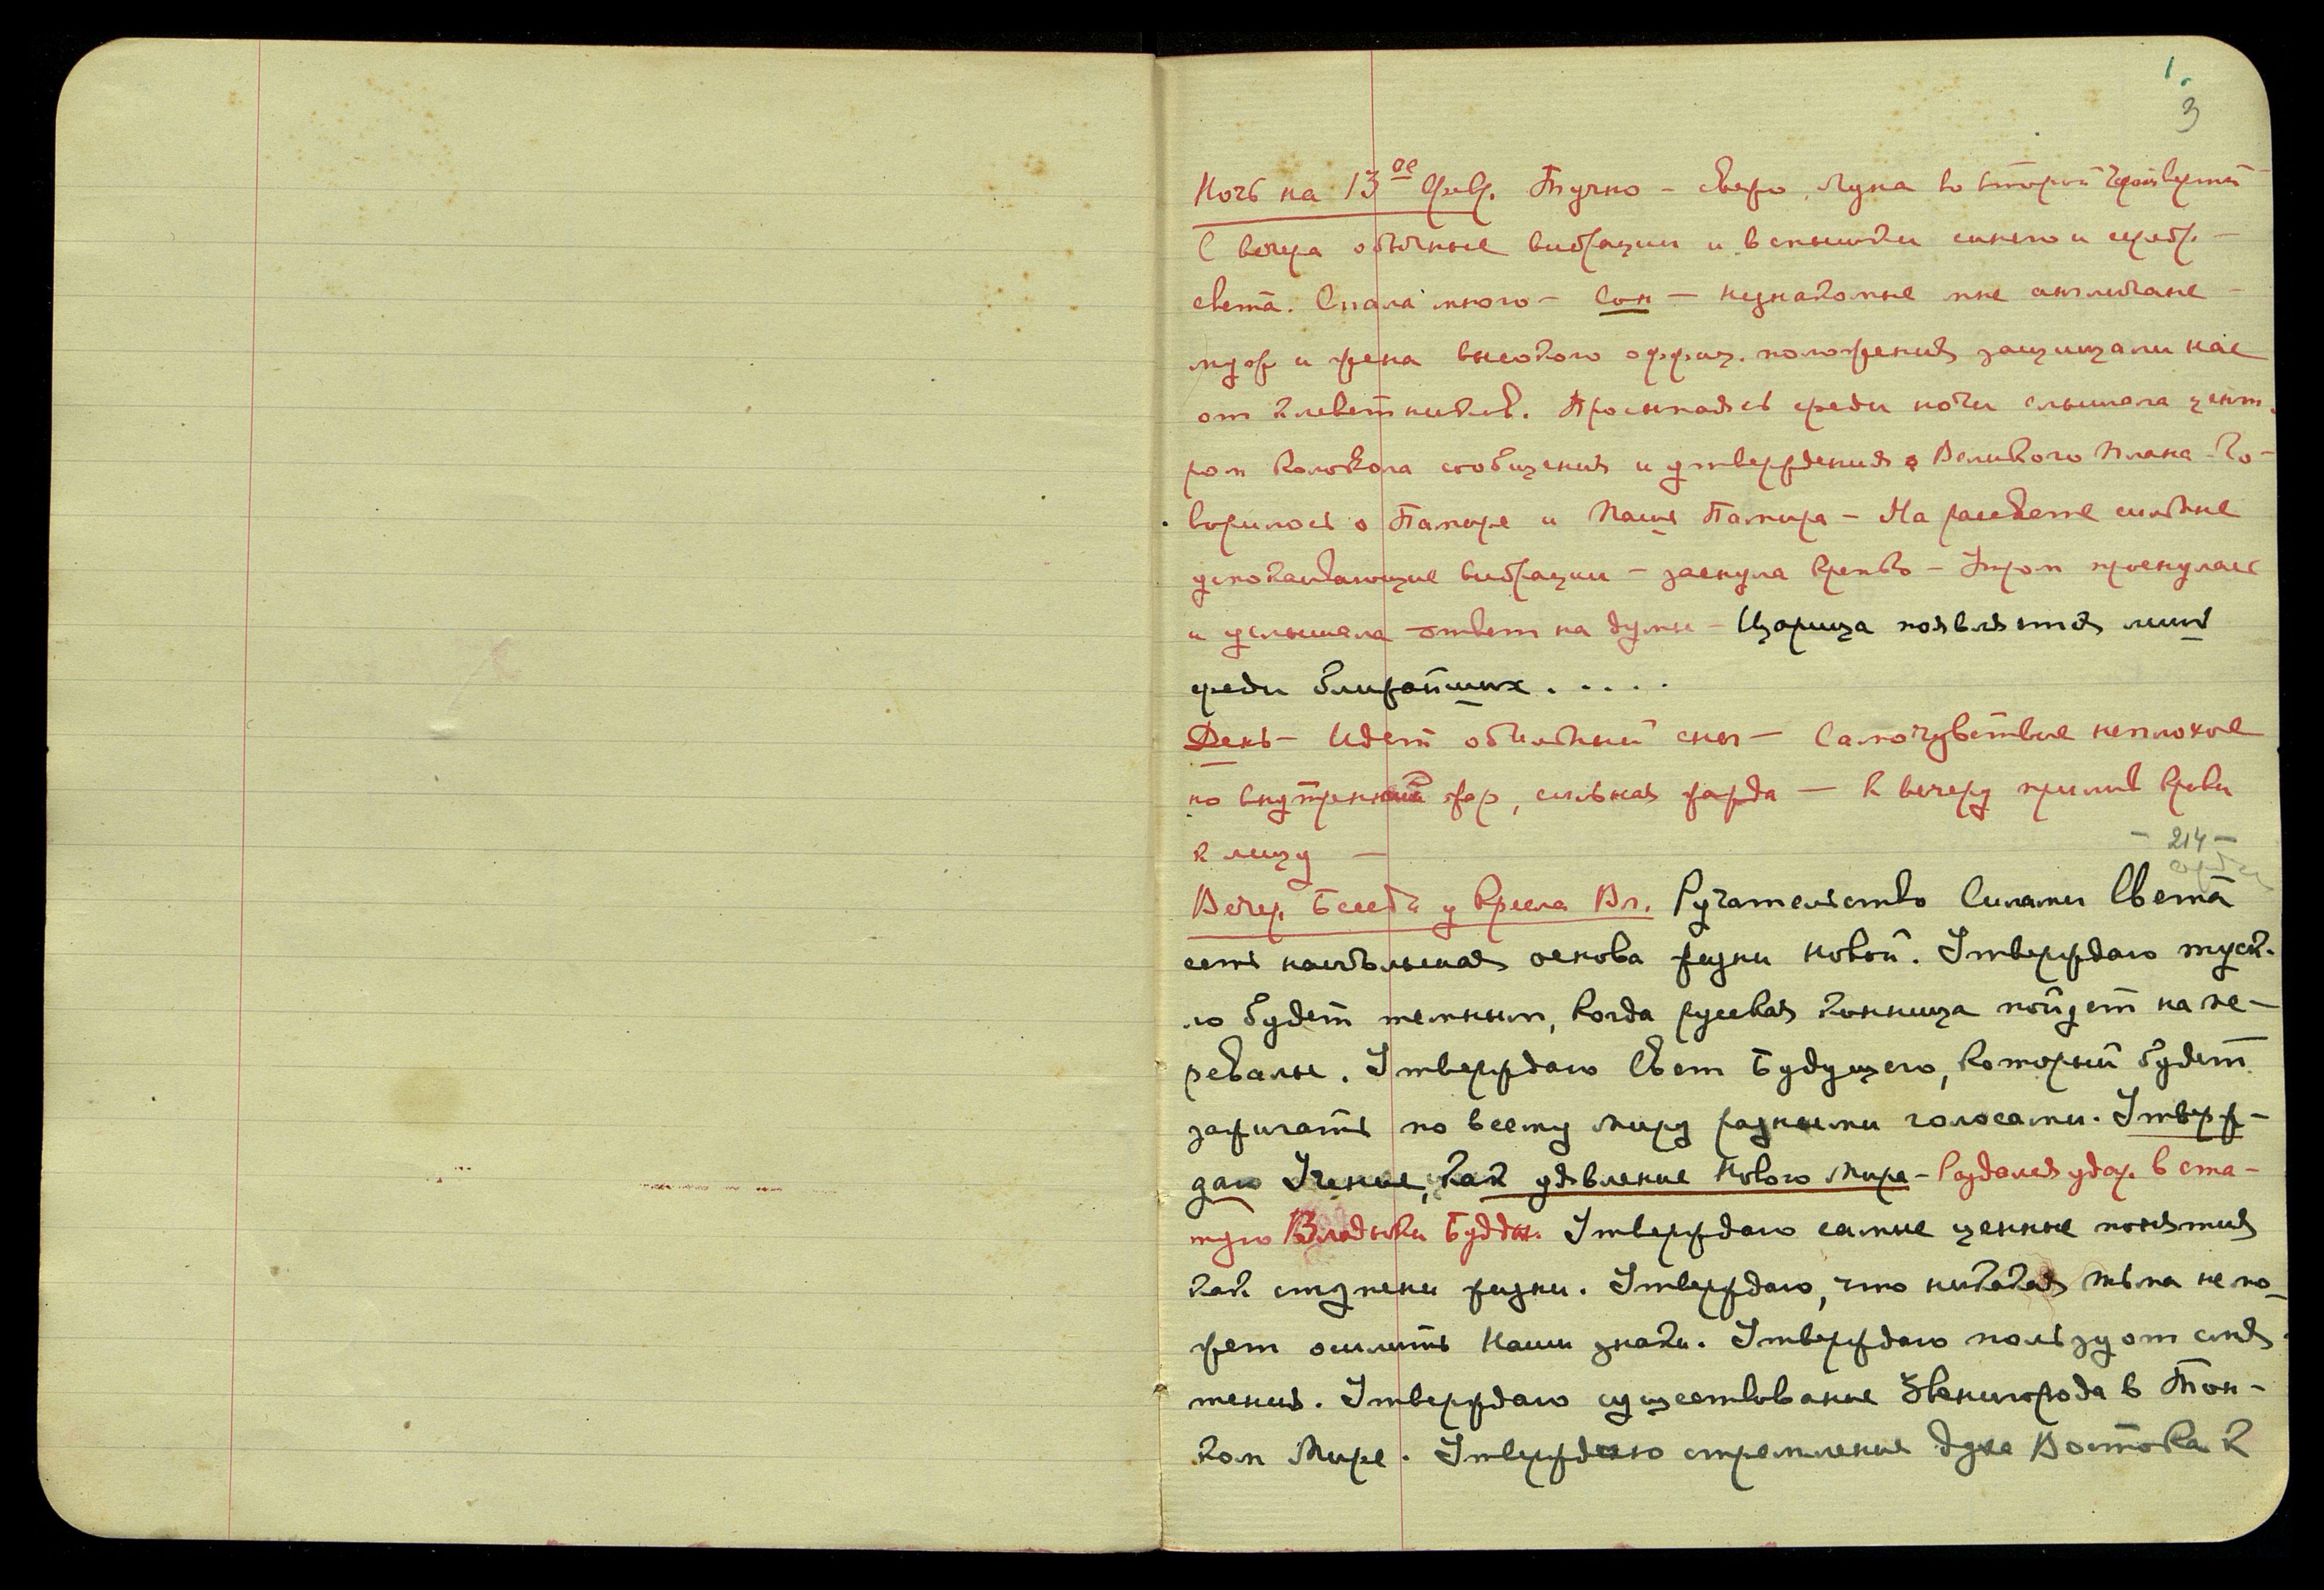 1.
3
Ночь на 13ое февр. Тучно – сыро. Луна во второй четверти
С вечера обычные вибрации и вспышки синего и серебр. –
света. Спала много – Сон – незнакомые мне англичане –
муж и жена высокого оффиц. положения защищали нас
от клеветников. Просыпаясь среди ночи слышала цент.
ром колокола сообщения и утверждения Великого Плана – Го-
ворилось о Памире и Памира – На рассвете сильные
успокаивающие вибрации – заснула крепко – Утром проснулась
и услышала ответ на думы – Царица появляется лишь
среди ближайших . . . . .
День – Идет обильный снег – Самочувствие неплохое
но внутренний жар, сильная жажда – К вечеру прилив крови
к лицу –
– 214 –
Вечер. Беседа у Кресла Вл. Ручательство Силами Света
есть наибольшая основа жизни новой. Утверждаю тускл.
ло будет темным, когда русская конница пойдет на пе-
ревалы. Утверждаю Свет Будущего, который будет
зажигать по всему миру разными голосами. Утверж-
даю Учение, как явление Нового Мира – Раздался удар в ста-
тую Владыки Будды. Утверждаю самые ценные понятия
как ступени жизни. Утверждаю, что никакая тьма не мо-
жет осилить Наши знаки. Утверждаю пользу от смя-
тения. Утверждаю существование Звенигорода в Тон-
ком Мире. Утверждаю стремление духа Востока к